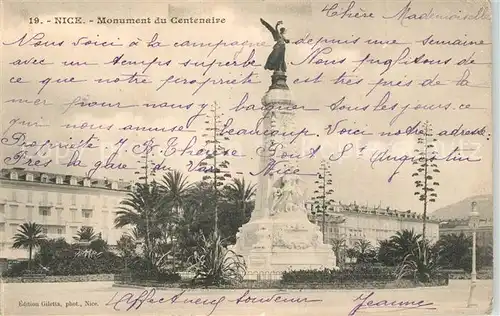 19. - NICE. - Monument du Centenaire
Chère Mademoiselle
Nous voici à la campagne depuis une semaine
avec un temps superbe. Nous profitons de
ce que notre propriété est très près de la
mer pour nous y baigner tous les jours ce
qui nous amuse beaucoup. Voici notre adresse
Propriété J. B. Pont St Augustin
Près la gare du Var Nice
Affectueux souvenir Jeanne
Édition Giletta, phot., Nice.